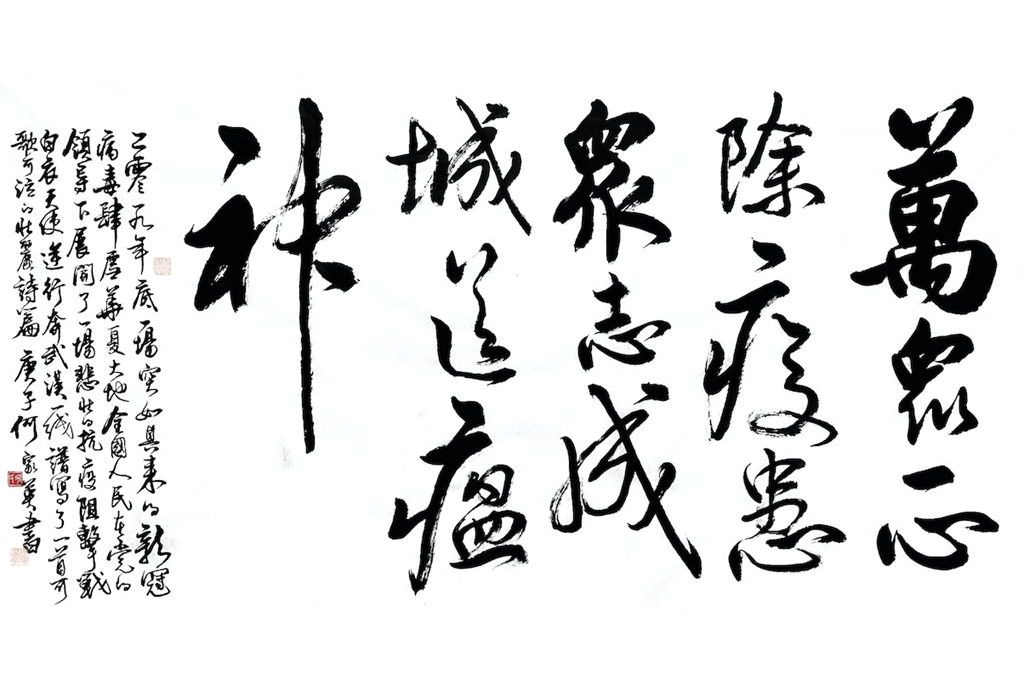 萬眾一心
除疫患
眾志成
城送瘟
神
二零一九年底一場突如其来的新冠
病毒肆虐華夏大地全國人民在党的
領导下展開了一場悲壮的抗疫阻擊戰
白衣天使逆行奔武漢一线譜寫了一首可
歌可泣的壮麗詩篇 庚子何家英書